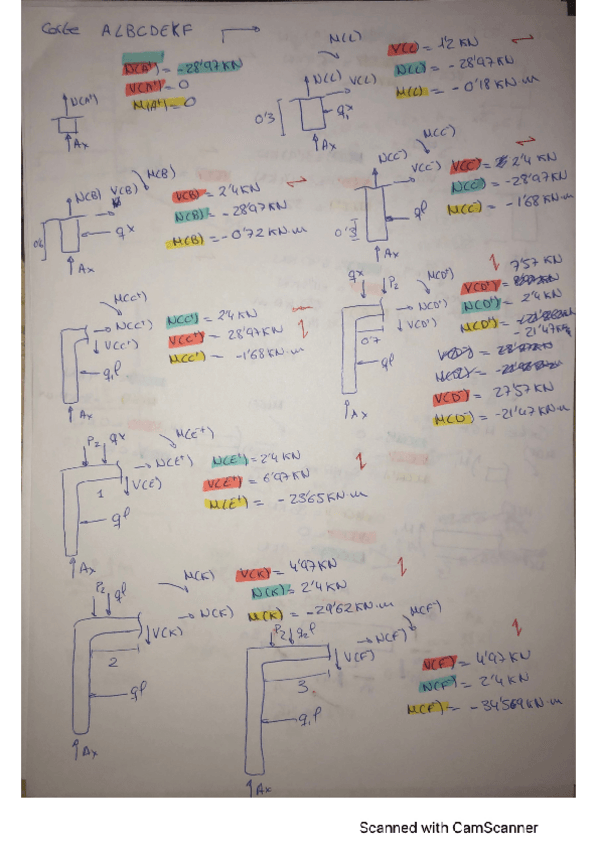 Corte ALBCDEKF
N(A⁺) = -28'97 KN
V(A⁺) = 0
M(A⁺) = 0
N(A⁺)
Ax
M(L)
N(L)
V(L)
0'3
Ax
V(L) = 1'2 KN
N(L) = -28'97 KN
M(L) = -0'18 KN·m
M(B)
N(B)
V(B)
qx
Ax
V(B) = 2'4 KN
N(B) = -28'97 KN
M(B) = -0'72 KN·m
M(C⁻)
N(C⁻)
V(C⁻)
ql
Ax
V(C⁻) = 2'4 KN
N(C⁻) = -28'97 KN
M(C⁻) = -1'68 KN·m
M(C⁺)
N(C⁺)
V(C⁺)
Ax
N(C⁺) = 2'4 KN
V(C⁺) = 28'97 KN
M(C⁺) = -1'68 KN·m
qx P₂
M(D⁺)
N(D⁺)
V(D⁺)
0'7
ql
Ax
7'57 KN
V(D⁺) =
N(D⁺) = 2'4 KN
M(D⁺) =
-21'47 KN
V(D⁻) = 27'57 KN
M(D⁻) = -21'47 KN·m
P₂ qx
M(E⁺)
N(E⁺)
V(E)
1
ql
Ax
N(E⁺) = 2'4 KN
V(E⁺) = 6'97 KN
M(E⁺) = -23'65 KN·m
P₂ ql
M(K)
N(K)
V(K)
2
ql
Ax
V(K) = 4'97 KN
N(K) = 2'4 KN
M(K) = -29'62 KN·m
P₂ q₂l
M(F⁻)
N(F⁻)
V(F)
3
q₁l
Ax
V(F⁻) = 4'97 KN
N(F⁻) = 2'4 KN
M(F⁻) = -34'569 KN·m
Scanned with CamScanner